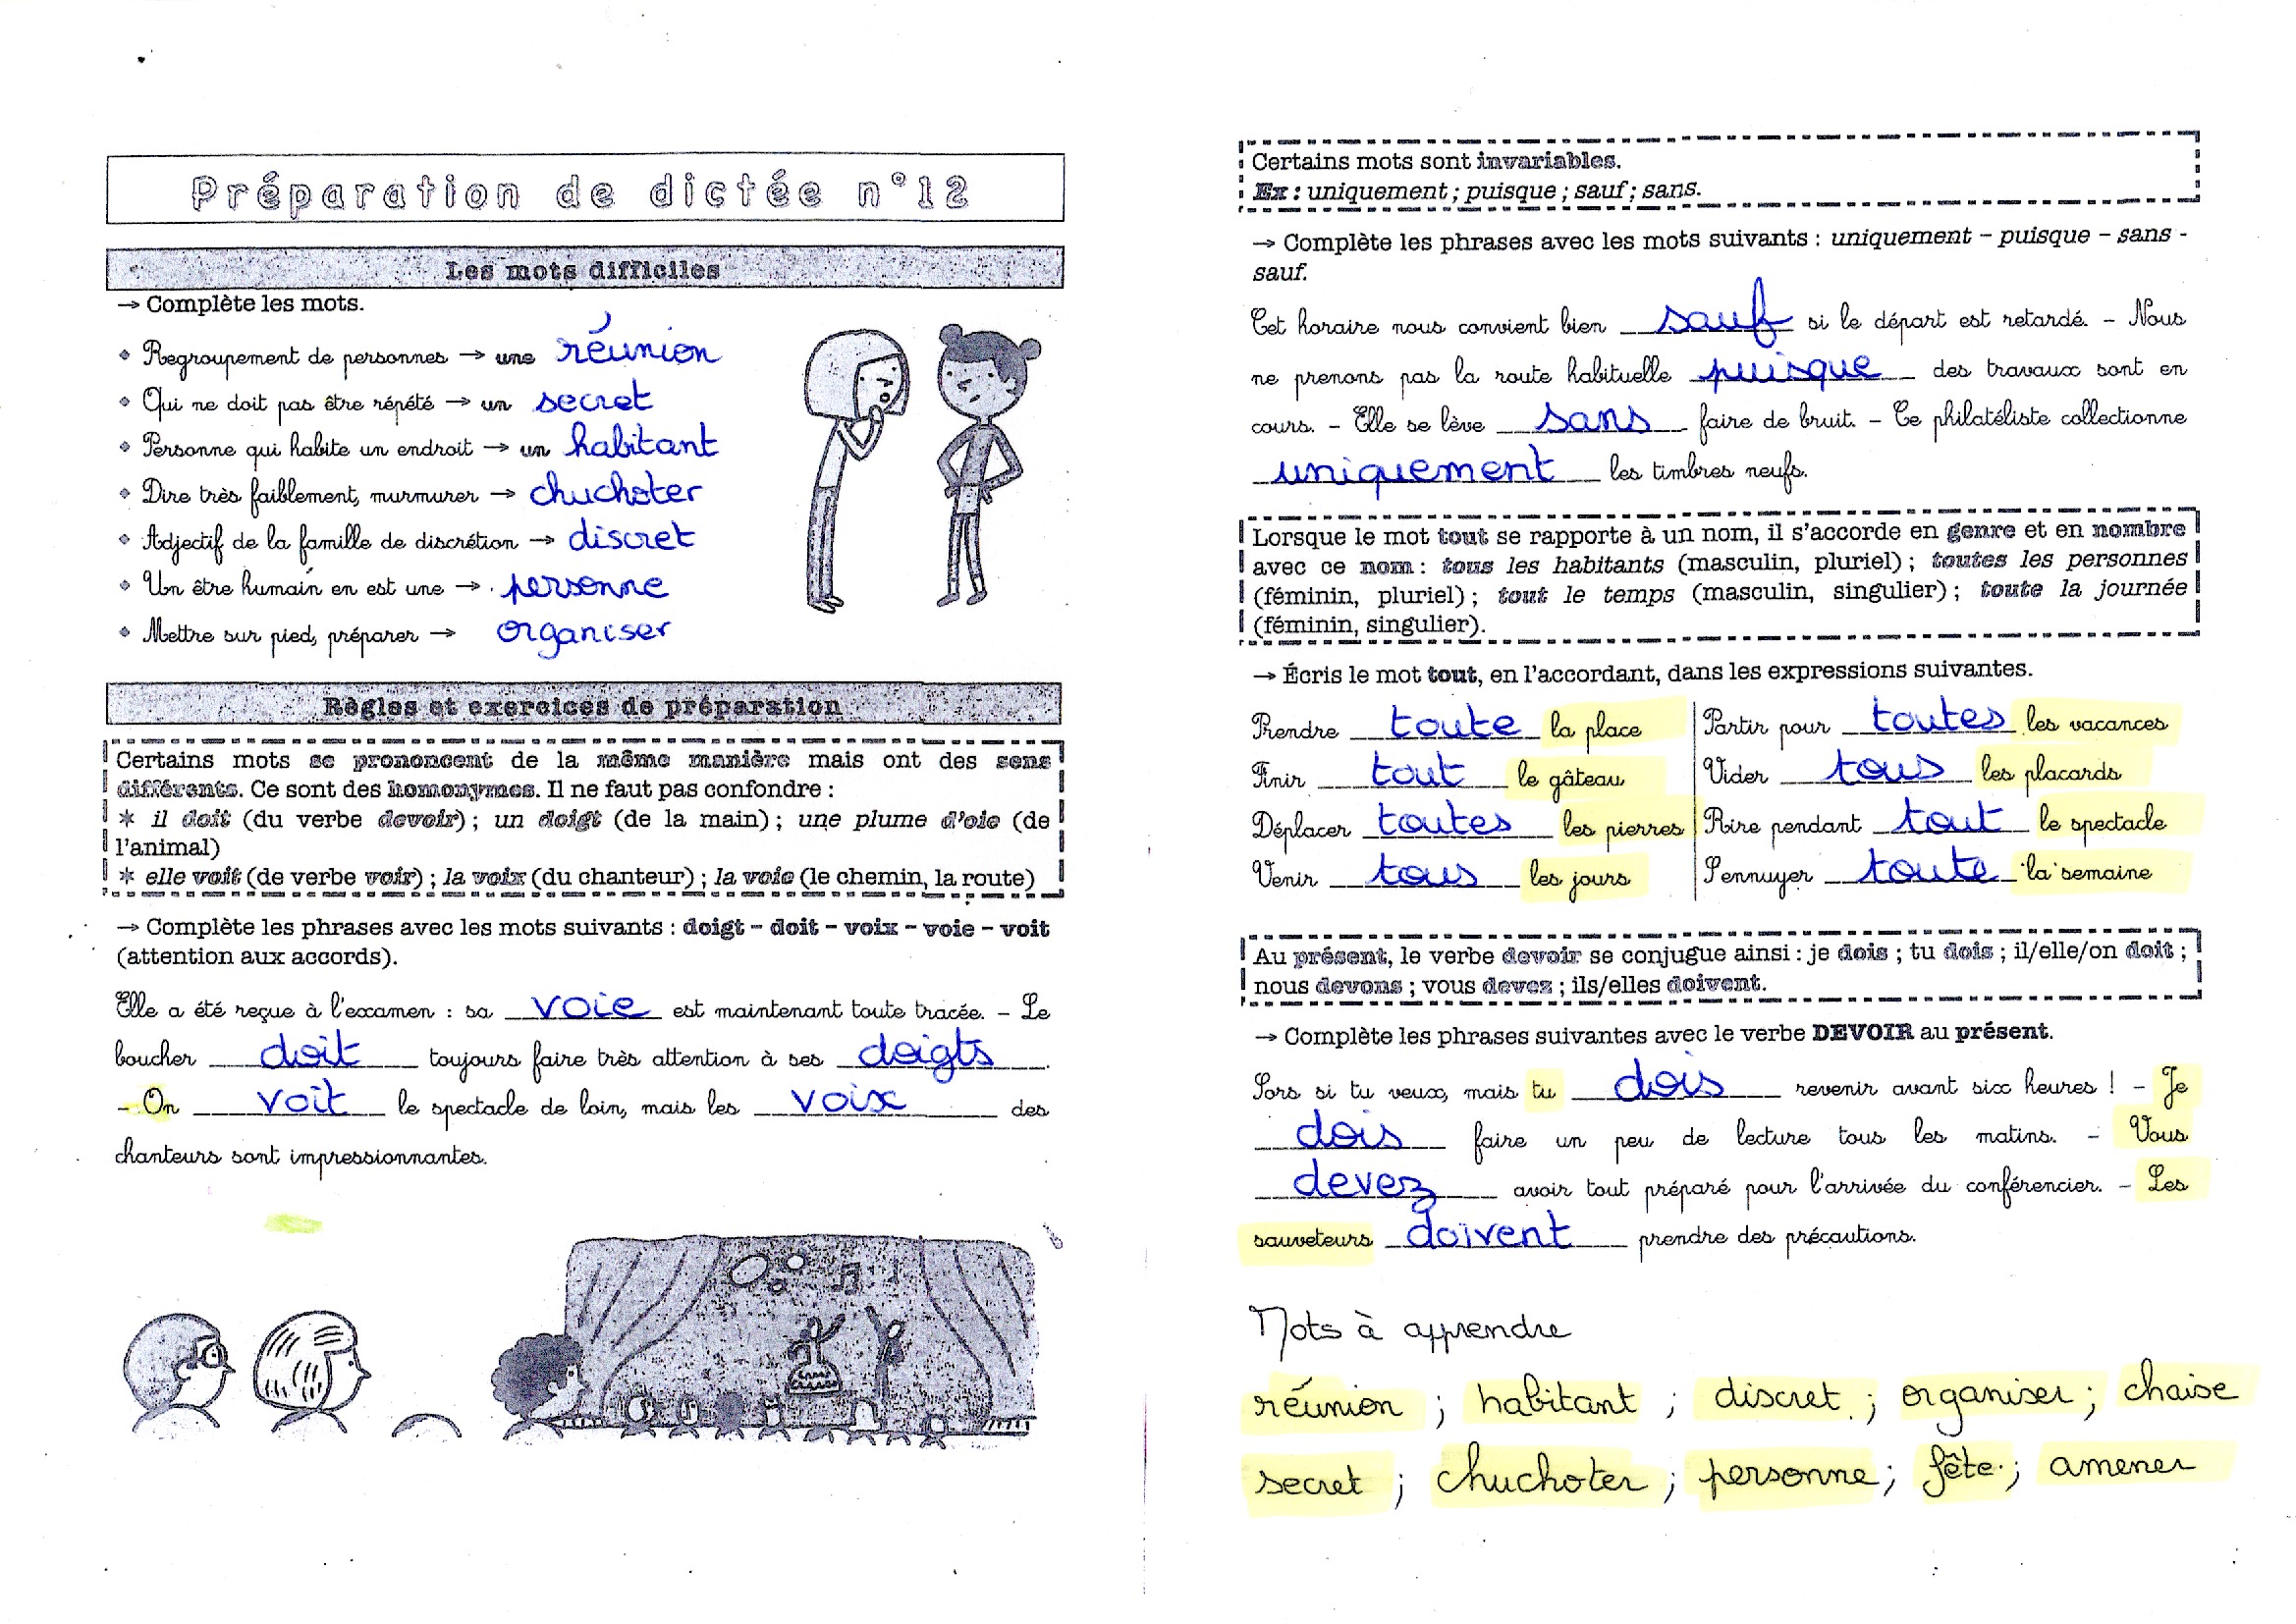 Préparation de dictée n°12
Les mots difficiles
→ Complète les mots.
• Regroupement de personnes → une réunion
• Qui ne doit pas être répété → un secret
• Personne qui habite un endroit → un habitant
• Dire très faiblement, murmurer → chuchoter
• Adjectif de la famille de discrétion → discret
• Un être humain en est une → personne
• Mettre sur pied, préparer → organiser
Règles et exercices de préparation
Certains mots se prononcent de la même manière mais ont des sens
différents. Ce sont des homonymes. Il ne faut pas confondre :
* il doit (du verbe devoir) ; un doigt (de la main) ; une plume d'oie (de
l'animal)
* elle voit (de verbe voir) ; la voix (du chanteur) ; la voie (le chemin, la route)
→ Complète les phrases avec les mots suivants : doigt – doit – voix – voie – voit
(attention aux accords).
Elle a été reçue à l'examen : sa voie est maintenant toute tracée. – Le
boucher doit toujours faire très attention à ses doigts.
– On voit le spectacle de loin, mais les voix des
chanteurs sont impressionnantes.
Certains mots sont invariables.
Ex : uniquement ; puisque ; sauf ; sans.
→ Complète les phrases avec les mots suivants : uniquement – puisque – sans -
sauf.
Cet horaire nous convient bien sauf si le départ est retardé. – Nous
ne prenons pas la route habituelle puisque des travaux sont en
cours. – Elle se lève sans faire de bruit. – Ce philatéliste collectionne
uniquement les timbres neufs.
Lorsque le mot tout se rapporte à un nom, il s'accorde en genre et en nombre
avec ce nom : tous les habitants (masculin, pluriel) ; toutes les personnes
(féminin, pluriel) ; tout le temps (masculin, singulier) ; toute la journée
(féminin, singulier).
→ Écris le mot tout, en l'accordant, dans les expressions suivantes.
Prendre toute la place
Finir tout le gâteau
Déplacer toutes les pierres
Venir tous les jours
Partir pour toutes les vacances
Vider tous les placards
Rire pendant tout le spectacle
S'ennuyer toute la semaine
Au présent, le verbe devoir se conjugue ainsi : je dois ; tu dois ; il/elle/on doit ;
nous devons ; vous devez ; ils/elles doivent.
→ Complète les phrases suivantes avec le verbe DEVOIR au présent.
Sors si tu veux, mais tu dois revenir avant six heures ! – Je
dois faire un peu de lecture tous les matins. – Vous
devez avoir tout préparé pour l'arrivée du conférencier. – Les
sauveteurs doivent prendre des précautions.
Mots à apprendre
réunion ; habitant ; discret ; organiser ; chaise
secret ; chuchoter ; personne ; fête ; amener